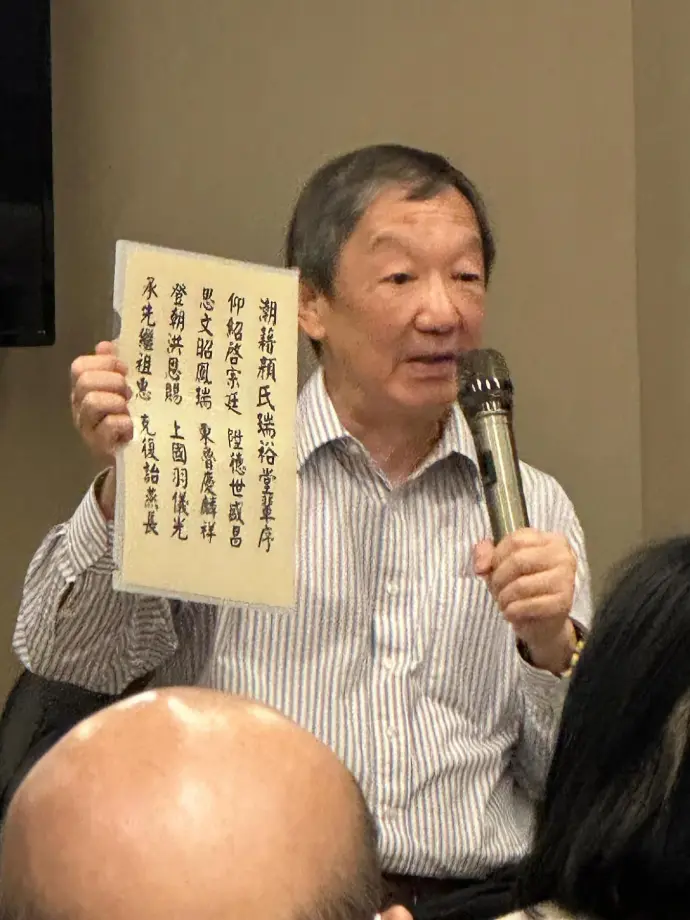 潮籍顏氏瑞裕堂輩序
仰紹啓宗廷 陞德世盛昌
思文昭鳳瑞 東魯慶麟祥
登朝洪恩賜 上國羽儀光
承先繼祖恩 克復詒燕長